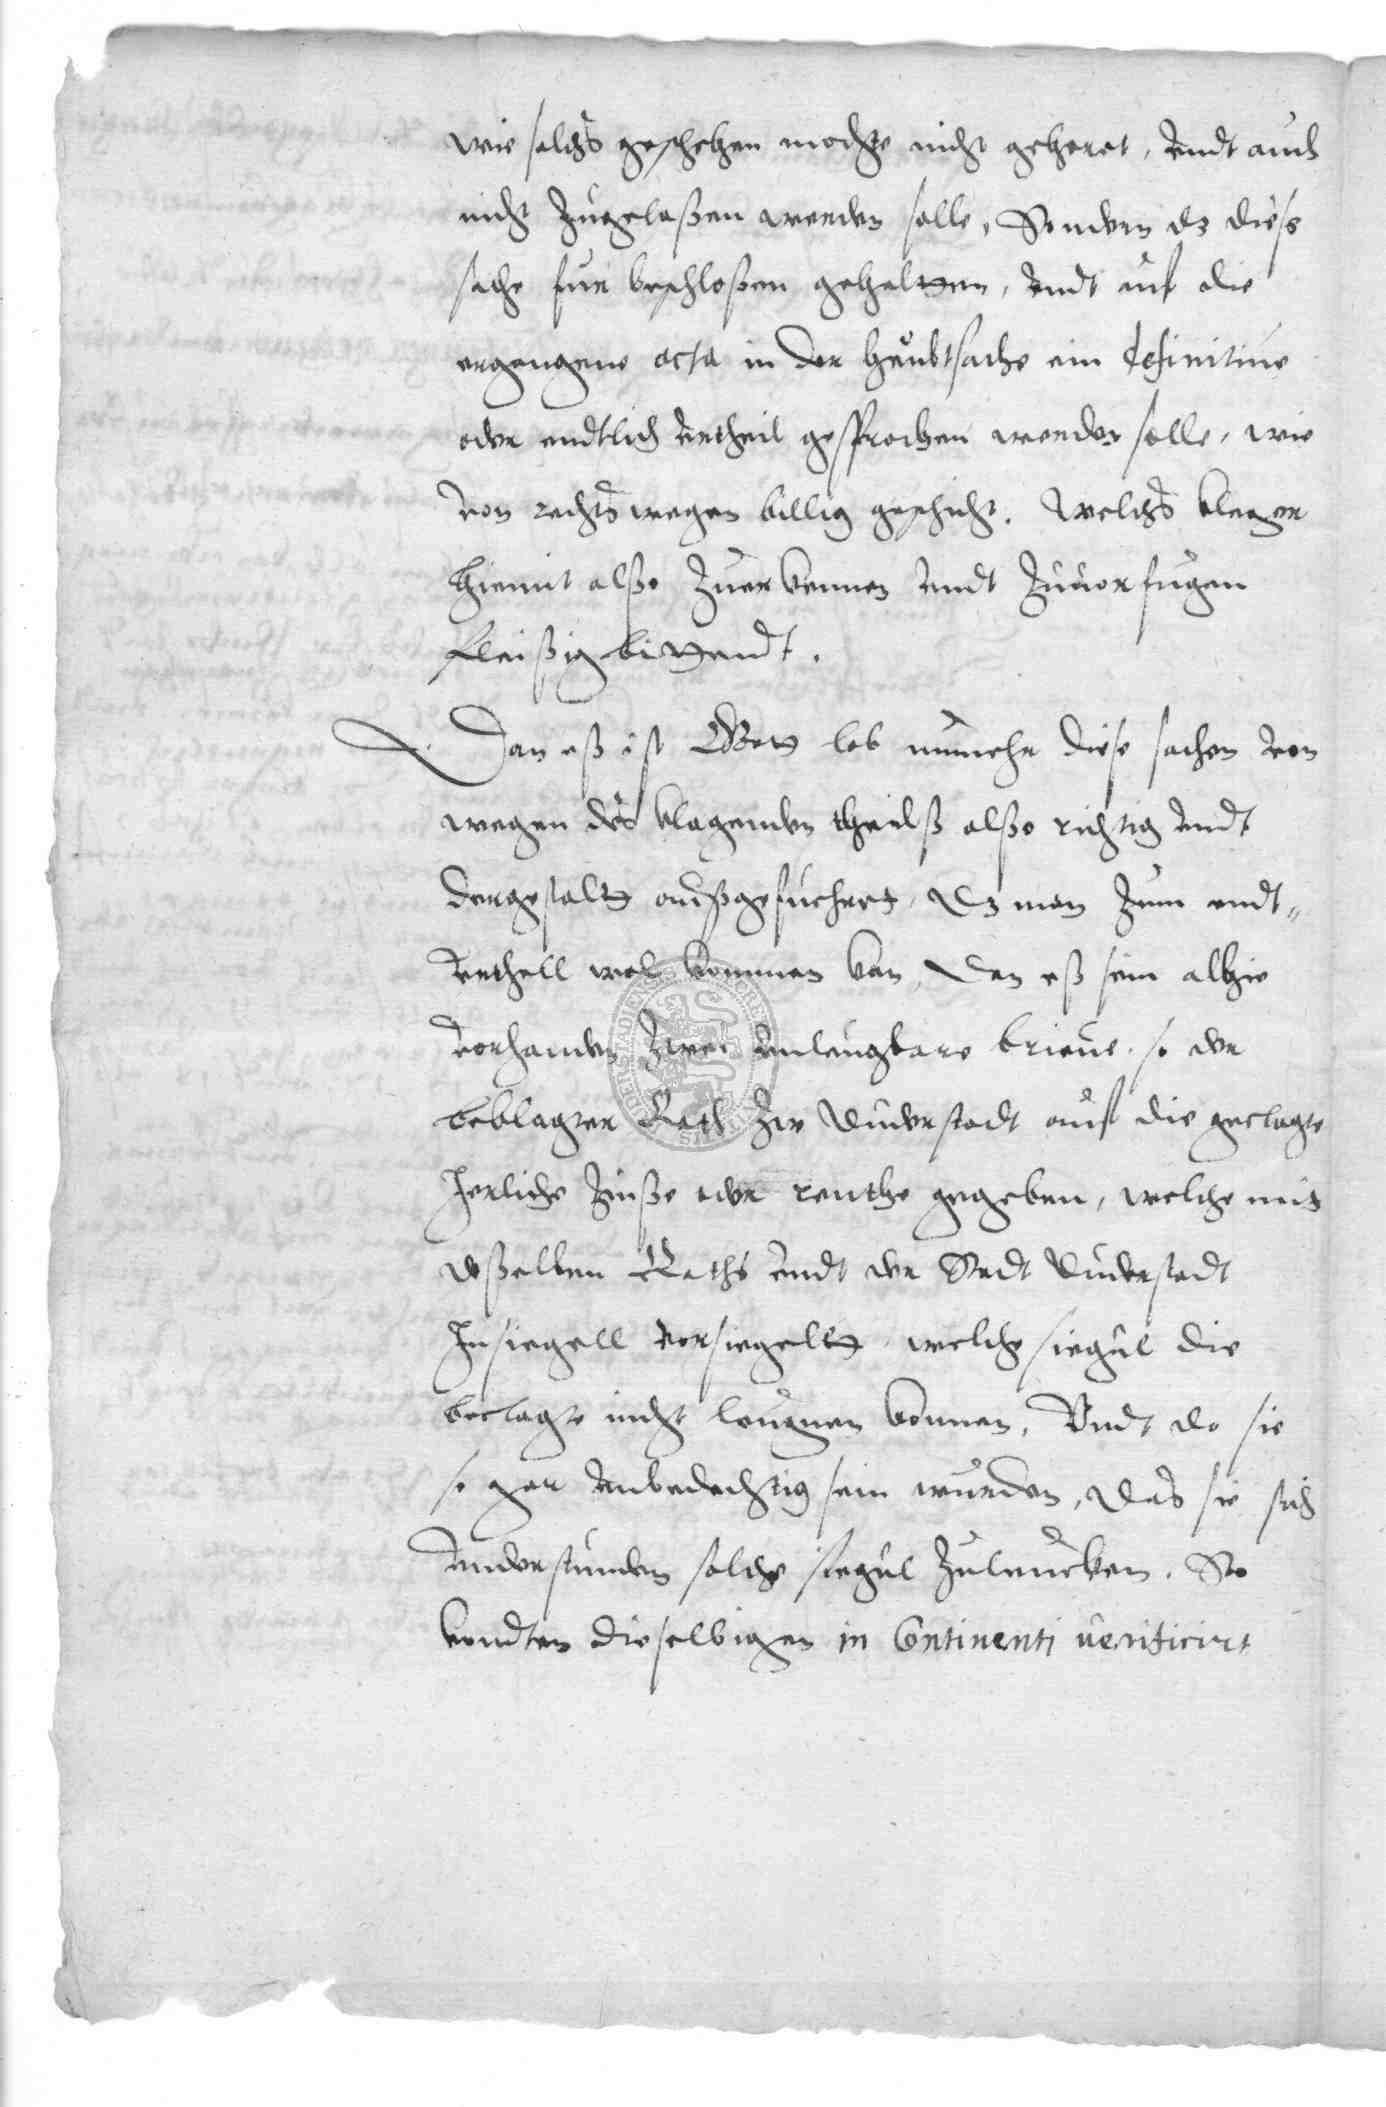 wie solchs geschehen mochte nicht gehoret, vndt auch
nicht zugelaßen werden solle, Sondern dz diese
sache fur beschloßen gehaltten, vndt uf die
ergangene acta in der heubtsache ein definitiue
oder endtlich vrtheil gesprochen werden solle, wie
von rechts wegen billig geschicht. Welchs kleger
hiemit alßo zuerkennen vndt zuuorfugen
fleißig bittendt.
Dan eß ist Gott lob nunmehr diese sachen von
wegen des klagenden theilß alßo richtig vndt
dergestaltt außgefuhret, dz man zum endt-
vrthell wol kommen kan, Dan eß sein alhie
vorhanden zwei vnleugbare brieue, so der
beklagter Rath zu Duderstadt auf die geclagte
Jerliche Zinße oder renthe gegeben, welche mit
deßelben Raths vndt der Stadt Duderstadt
Insiegell vorsiegeltt, welche siegul die
beclagte nicht leugnen konnen, Vndt do sie
so gar vnbedechtig sein wurden, das sie sich
vnderstunden solche siegul zuleucken, So
kondten dieselbigen in Continenti uerificirt